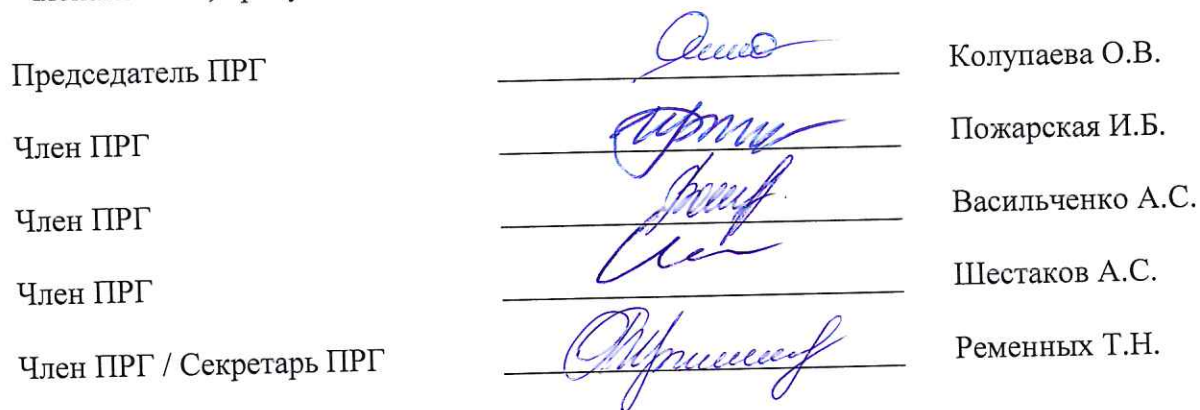 Председатель ПРГ Колупаева О.В.
Член ПРГ Пожарская И.Б.
Член ПРГ Васильченко А.С.
Член ПРГ Шестаков А.С.
Член ПРГ / Секретарь ПРГ Ременных Т.Н.